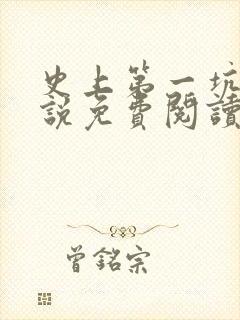 史上第一坑
說免費閱讀
曾銘宗